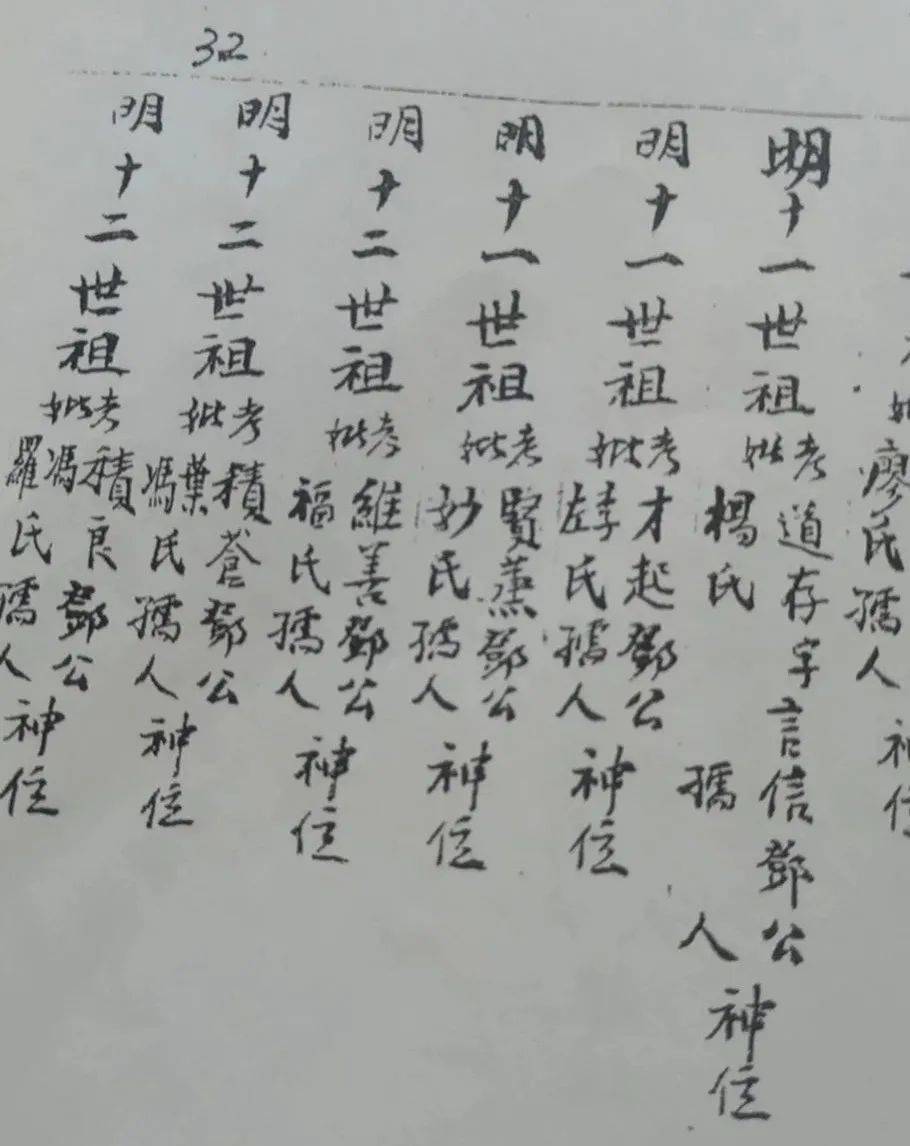 32
妣廖氏孺人神位
明十一世祖考妣道存字言信鄧公楊氏孺人神位
明十一世祖考妣才起鄧公李左氏孺人神位
明十一世祖考妣賢燕鄧公妙氏孺人神位
明十二世祖考妣維善鄧公福氏孺人神位
明十二世祖考妣積蒼鄧公葉馮氏孺人神位
明十二世祖考妣積良鄧公馮羅氏孺人神位